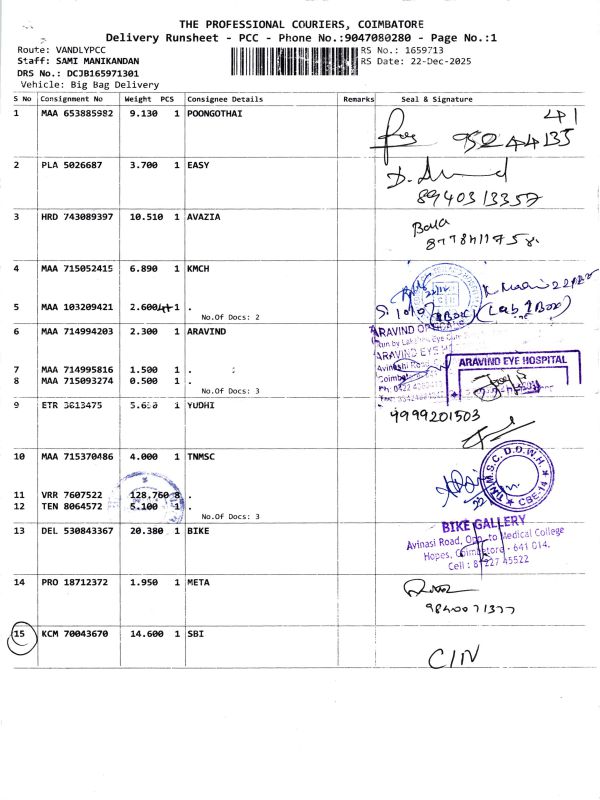 THE PROFESSIONAL COURIERS, COIMBATORE
Delivery Runsheet - PCC - Phone No.:9047080280 - Page No.:1
Route: VANDLYPCC RS No.: 1659713
Staff: SAMI MANIKANDAN RS Date: 22-Dec-2025
DRS No.: DCJB165971301
Vehicle: Big Bag Delivery
S No Consignment No Weight PCS Consignee Details Remarks Seal & Signature
1 MAA 653885982 9.130 1 POONGOTHAI
41
95244135
2 PLA 5026687 3.700 1 EASY
8940313357
3 HRD 743089397 10.510 1 AVAZIA
Bala
4 MAA 715052415 6.890 1 KMCH
5 MAA 103209421 2.600 1 .
(Lab 1 Box)
No.Of Docs: 2
6 MAA 714994203 2.300 1 ARAVIND
ARAVIND EYE
Avinashi Road
ARAVIND EYE HOSPITAL
7 MAA 714995816 1.500 1 .
8 MAA 715093274 0.500 1 .
No.Of Docs: 3
9 ETR 3813475 1 YUDHI
9999201503
10 MAA 715370486 4.000 1 TNMSC
T.N.M.S.C. D.D.W.H.
CBE-14
11 VRR 7607522 128.760 8 .
12 TEN 8064572 5.100 1 .
No.Of Docs: 3
13 DEL 530843367 20.380 1 BIKE
BIKE GALLERY
Avinasi Road, Opp. to Medical College
Hopes, Coimbatore - 641 014.
Cell : 87227 45522
14 PRO 18712372 1.950 1 META
15 KCM 70043670 14.600 1 SBI
C/N